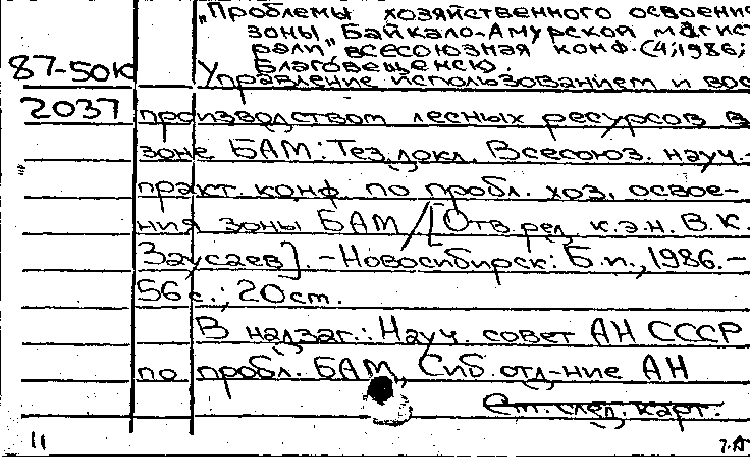 „Проблемы хозяйственного освоени
зоны „Байкало-Амурской магист
рали", всесоюзная конф. (4; 1986;
Благовещенск).
87-50к Управление использованием и вос
2037 производством лесных ресурсов в
зоне БАМ: Тез. докл. Всесоюз. науч.-
практ. конф. по пробл. хоз. освое-
ния зоны БАМ / [Отв. ред. к.э.н. В.К.
Заусаев]. - Новосибирск: Б.и., 1986. -
56 с.; 20 см.
В надзаг.: Науч. совет АН СССР
по пробл. БАМ, Сиб. отд-ние АН
См. след. карт.
11